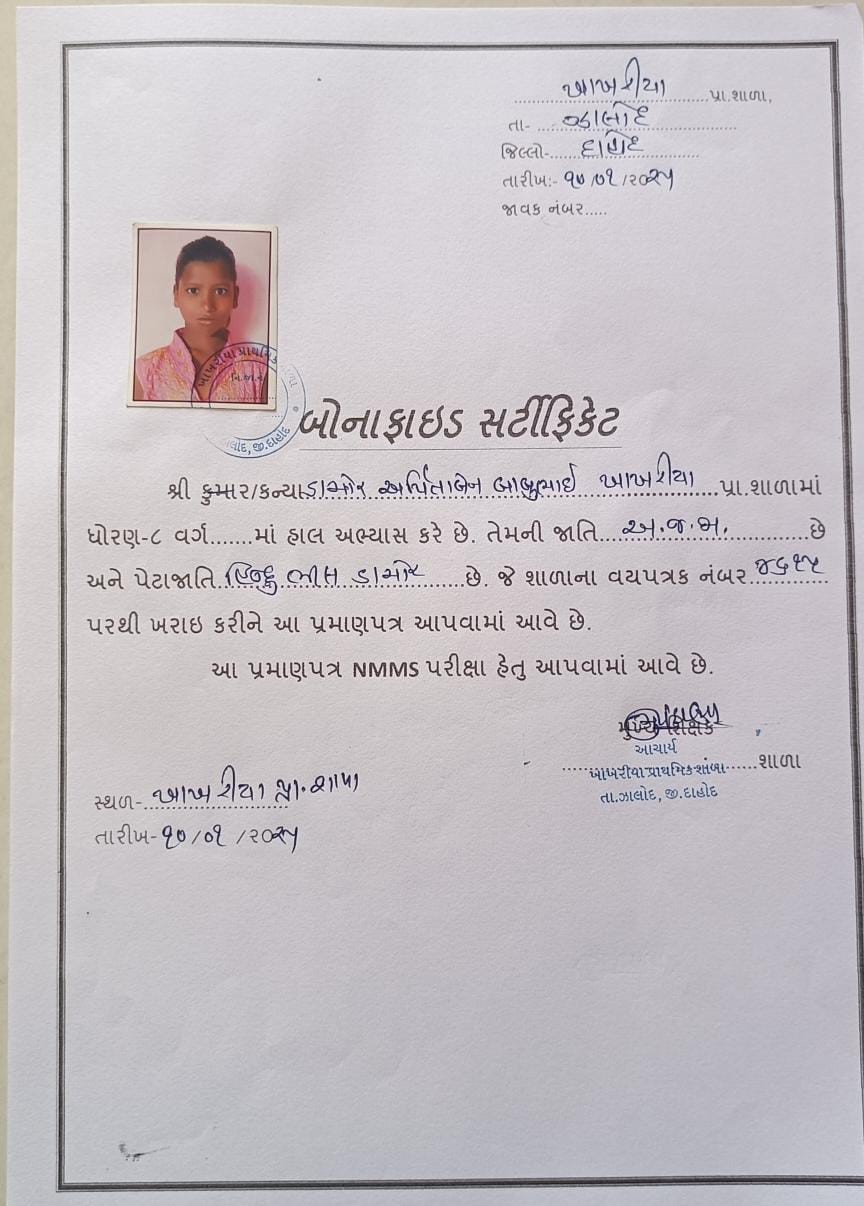 આખરીયા પ્રા.શાળા,
તા- ઝાલોદ
જિલ્લો- દાહોદ
તારીખ:- ૧૦/૦૧/૨૦૨૫
જાવક નંબર.....
ખાખરીયા પ્રાથમિક
બોનાફાઇડ સર્ટીફિકેટ
શ્રી કુમાર/કન્યા ડામોર અર્પિતાબેન બાબુભાઈ આખરીયા પ્રા.શાળામાં
ધોરણ-૮ વર્ગ.......માં હાલ અભ્યાસ કરે છે. તેમની જાતિ અ.જ.જા. છે
અને પેટાજાતિ હિન્દુ ભીલ ડામોર છે. જે શાળાના વયપત્રક નંબર ૪૬૧૫
પરથી ખરાઇ કરીને આ પ્રમાણપત્ર આપવામાં આવે છે.
આ પ્રમાણપત્ર NMMS પરીક્ષા હેતુ આપવામાં આવે છે.
મુખ્ય શિક્ષક
આચાર્ય
ખાખરીયા પ્રાથમિક શાળા શાળા
તા.ઝાલોદ, જી.દાહોદ
સ્થળ- આખરીયા પ્રા.શાળા
તારીખ- ૧૦/૦૧/૨૦૨૫